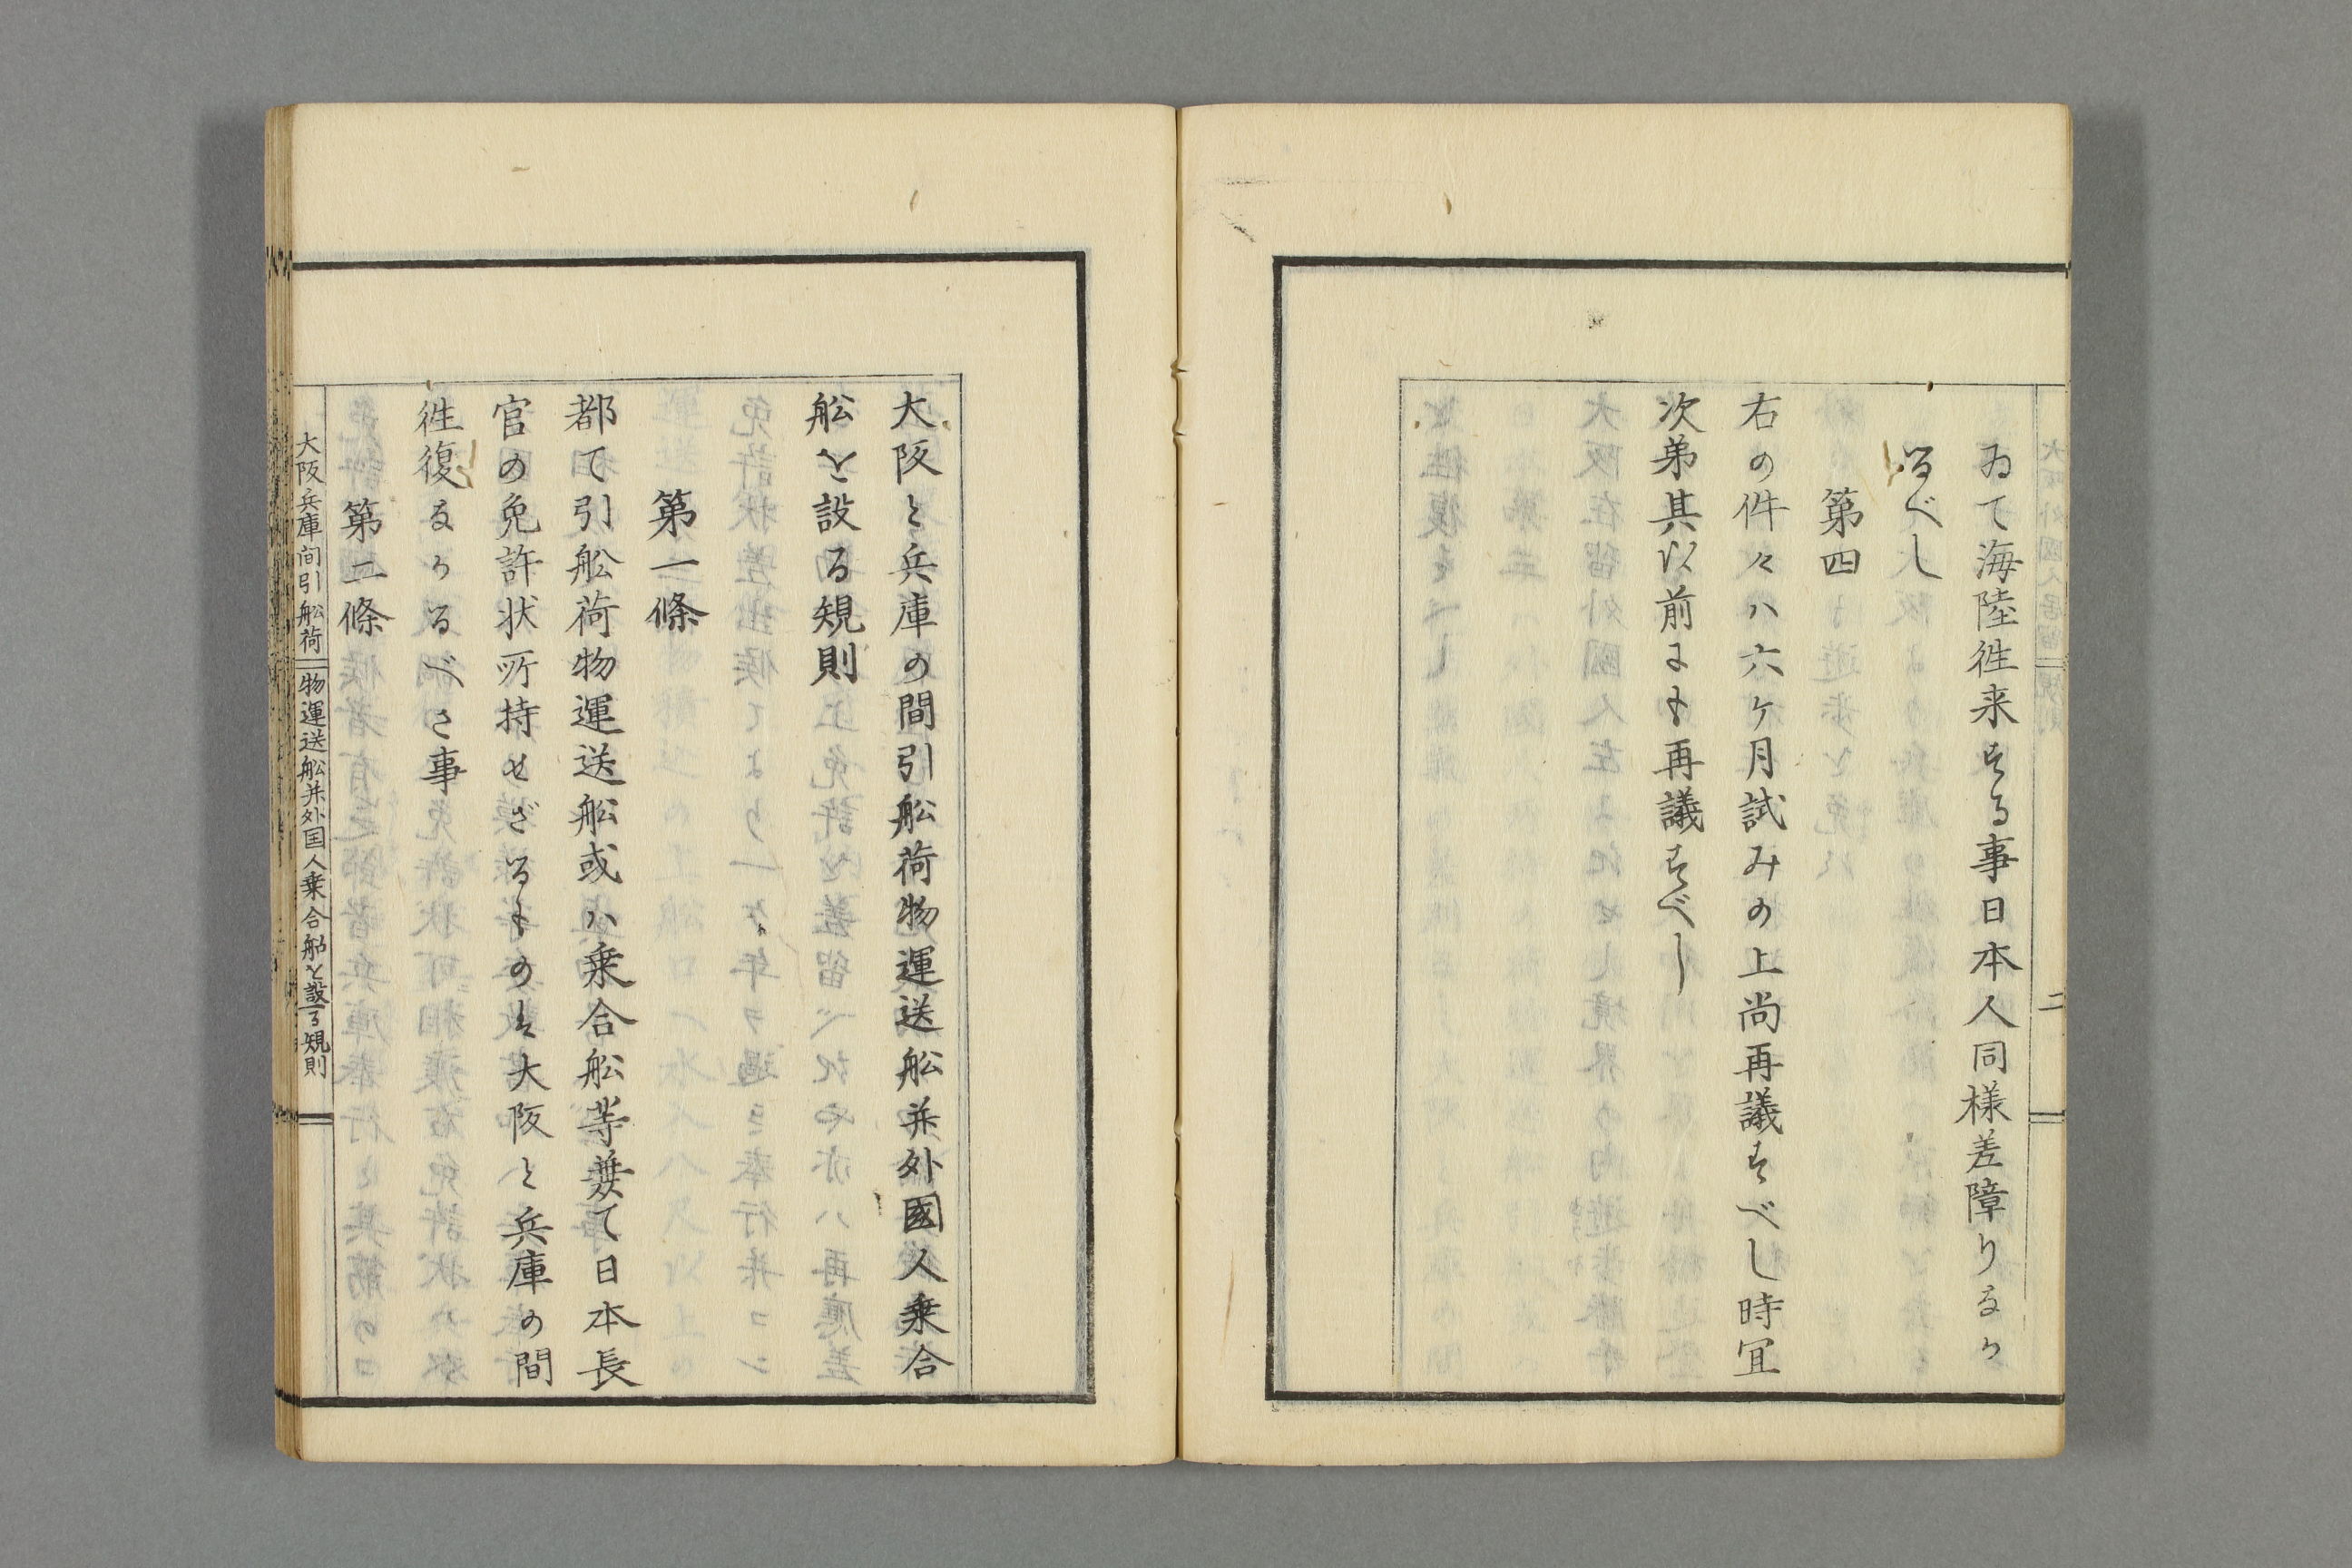 ゐて海陸徃来する事日本人同様差障りなか
るべし
第四
右の件々ハ六ケ月試みの上尚再議すべし時宜
次弟其以前にも再議すべし
二
大阪と兵庫の間引舩荷物運送舩并外國人乗合
舩を設る規則
第一條
都て引舩荷物運送舩或ハ乗合舩等兼て日本長
官の免許状所持せざるものは大阪と兵庫の間
徃復なかるべき事
第二條
大阪兵庫間引舩荷物運送舩并外国人乗合舩を設る規則